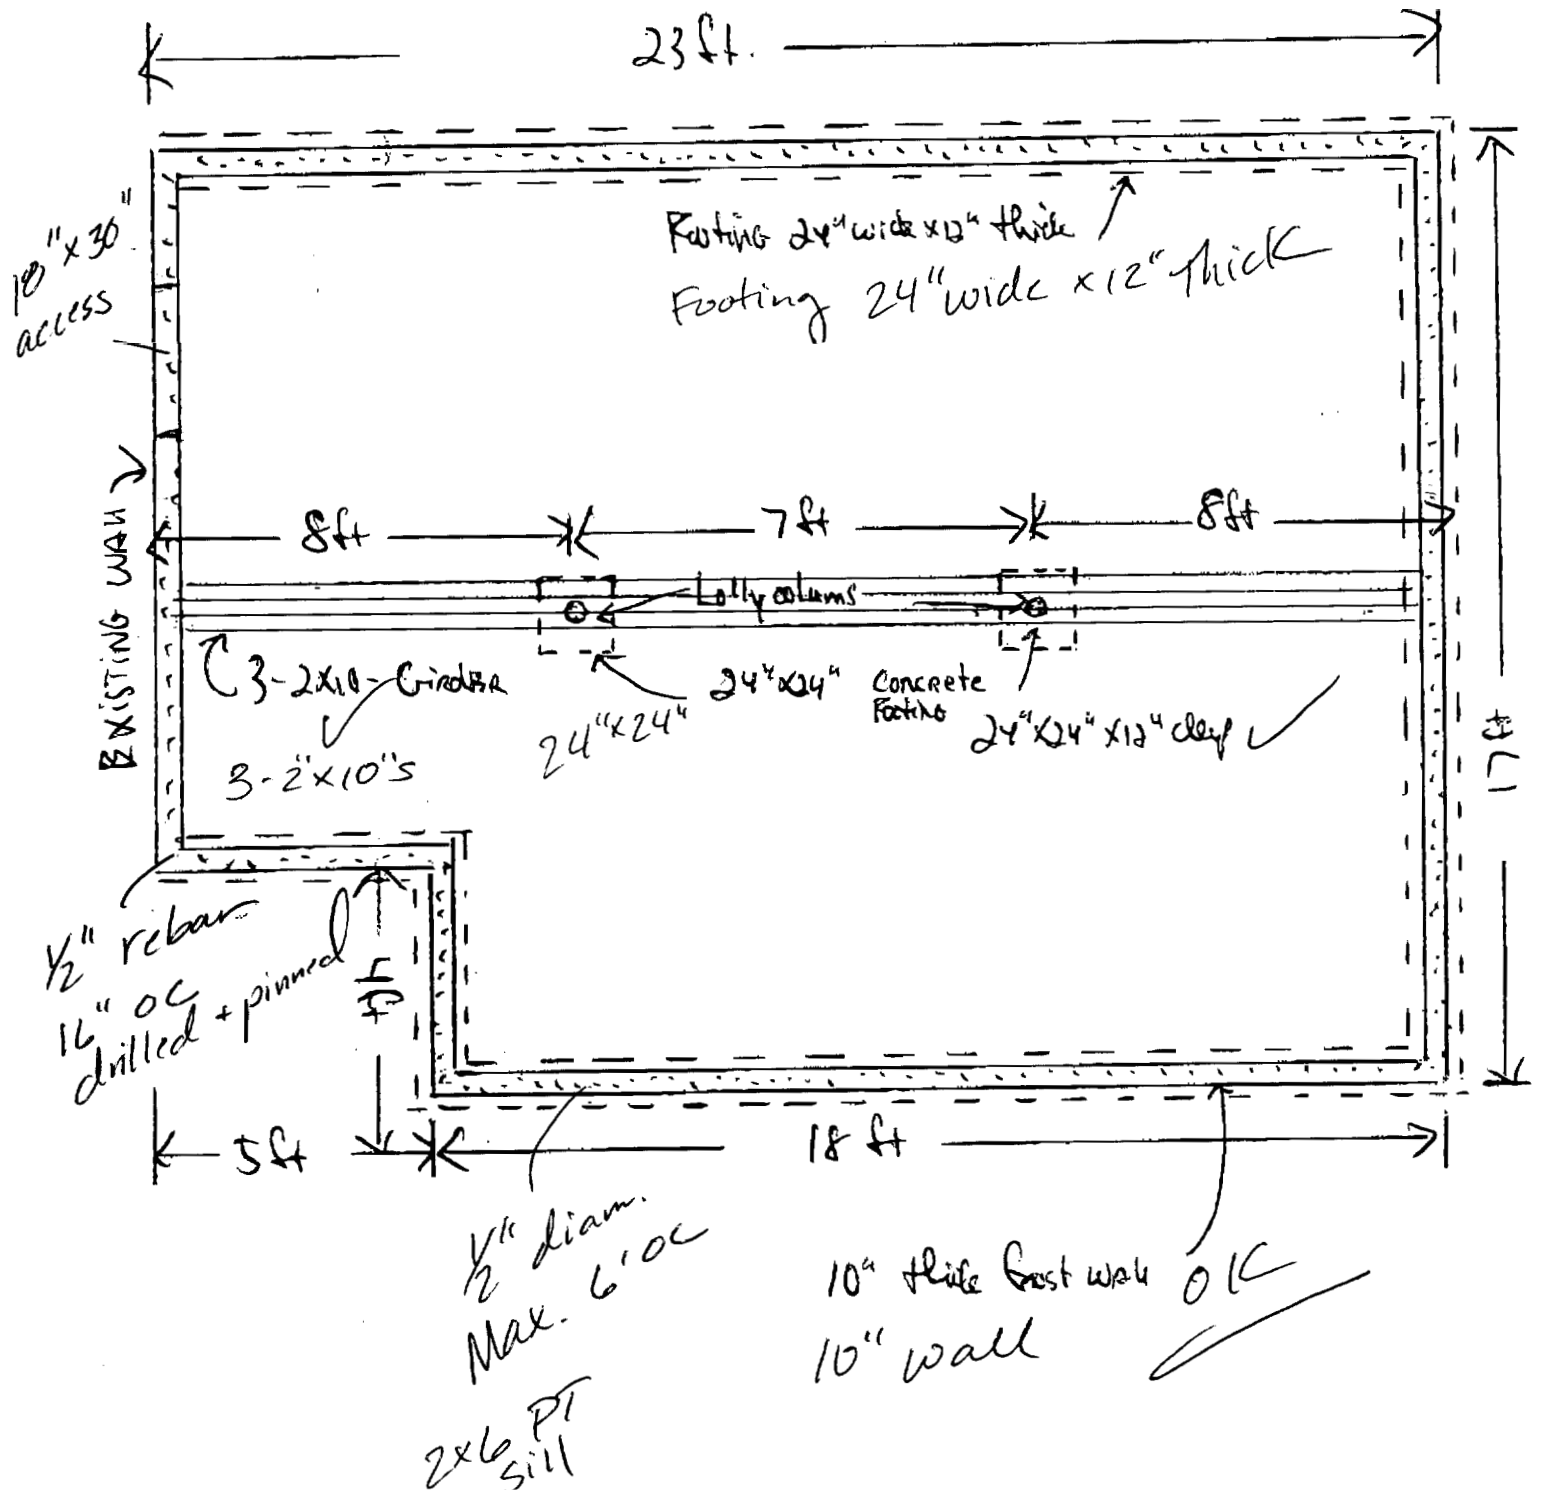 23 ft.
18" x 30"
access
Footing 24" wide x 12" thick
Footing 24" wide x 12" thick
EXISTING WALL
8ft
7 ft
8ft
Lally colums
3-2x10- GirdER
24"x24"
CONCRETE
Footing
24"x24"
24"x24"x12" deep
3-2"x10"s
17 ft
1/2" rebar
16" OC
drilled + pinned
4 ft
5 ft
18 ft
1/2" diam.
Max. 6' OC
2x6 PT
sill
10" thick frost wall OK
10" wall